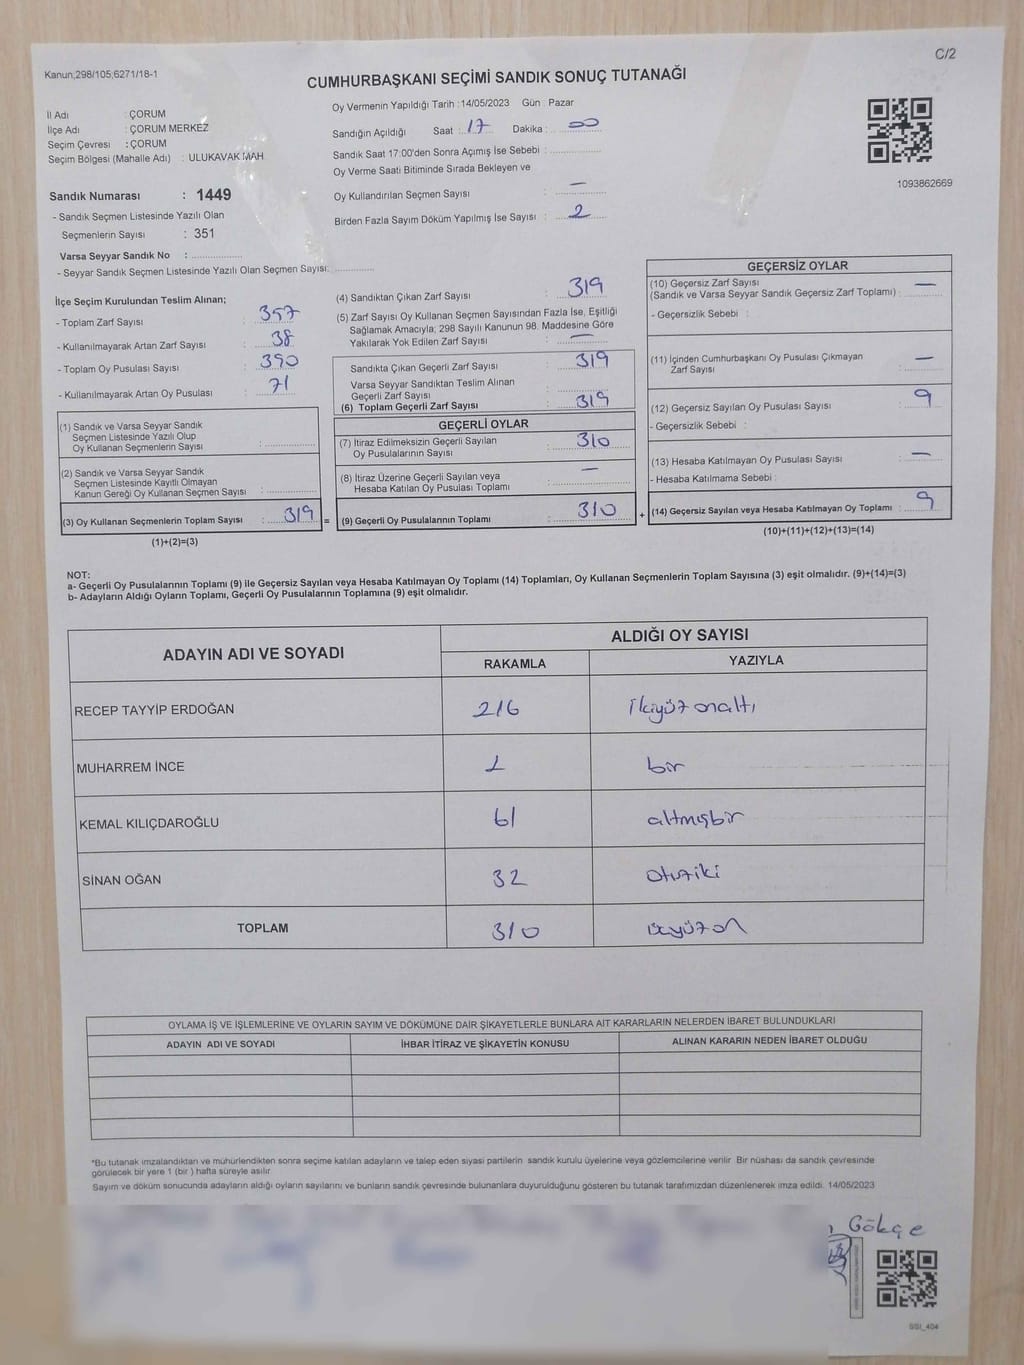 C/2
Kanun;298/105;6271/18-1
CUMHURBAŞKANI SEÇİMİ SANDIK SONUÇ TUTANAĞI
İl Adı : ÇORUM
İlçe Adı : ÇORUM MERKEZ
Seçim Çevresi : ÇORUM
Seçim Bölgesi (Mahalle Adı) : ULUKAVAK MAH
Sandık Numarası : 1449
- Sandık Seçmen Listesinde Yazılı Olan
Seçmenlerin Sayısı : 351
Varsa Seyyar Sandık No :
- Seyyar Sandık Seçmen Listesinde Yazılı Olan Seçmen Sayısı:
Oy Vermenin Yapıldığı Tarih :14/05/2023 Gün : Pazar
Sandığın Açıldığı Saat : 17 Dakika : 00
Sandık Saat 17:00'den Sonra Açımış İse Sebebi :
Oy Verme Saati Bitiminde Sırada Bekleyen ve
Oy Kullandırılan Seçmen Sayısı : —
Birden Fazla Sayım Döküm Yapılmış İse Sayısı : 2
1093862669
İlçe Seçim Kurulundan Teslim Alınan;
- Toplam Zarf Sayısı : 357
- Kullanılmayarak Artan Zarf Sayısı : 38
- Toplam Oy Pusulası Sayısı : 390
- Kullanılmayarak Artan Oy Pusulası : 71
(1) Sandık ve Varsa Seyyar Sandık
Seçmen Listesinde Yazılı Olup
Oy Kullanan Seçmenlerin Sayısı :
(2) Sandık ve Varsa Seyyar Sandık
Seçmen Listesinde Kayıtlı Olmayan
Kanun Gereği Oy Kullanan Seçmen Sayısı :
(3) Oy Kullanan Seçmenlerin Toplam Sayısı : 319 =
(1)+(2)=(3)
(4) Sandıktan Çıkan Zarf Sayısı : 319
(5) Zarf Sayısı Oy Kullanan Seçmen Sayısından Fazla İse, Eşitliği
Sağlamak Amacıyla; 298 Sayılı Kanunun 98. Maddesine Göre
Yakılarak Yok Edilen Zarf Sayısı : —
Sandıkta Çıkan Geçerli Zarf Sayısı : 319
Varsa Seyyar Sandıktan Teslim Alınan
Geçerli Zarf Sayısı :
(6) Toplam Geçerli Zarf Sayısı : 319
GEÇERLİ OYLAR
(7) İtiraz Edilmeksizin Geçerli Sayılan
Oy Pusulalarının Sayısı : 310
(8) İtiraz Üzerine Geçerli Sayılan veya
Hesaba Katılan Oy Pusulası Toplamı : —
(9) Geçerli Oy Pusulalarının Toplamı : 310 +
GEÇERSİZ OYLAR
(10) Geçersiz Zarf Sayısı
(Sandık ve Varsa Seyyar Sandık Geçersiz Zarf Toplamı) : —
- Geçersizlik Sebebi :
(11) İçinden Cumhurbaşkanı Oy Pusulası Çıkmayan
Zarf Sayısı : —
(12) Geçersiz Sayılan Oy Pusulası Sayısı : 9
- Geçersizlik Sebebi :
(13) Hesaba Katılmayan Oy Pusulası Sayısı : —
- Hesaba Katılmama Sebebi :
(14) Geçersiz Sayılan veya Hesaba Katılmayan Oy Toplamı : 9
(10)+(11)+(12)+(13)=(14)
NOT:
a- Geçerli Oy Pusulalarının Toplamı (9) ile Geçersiz Sayılan veya Hesaba Katılmayan Oy Toplamı (14) Toplamları, Oy Kullanan Seçmenlerin Toplam Sayısına (3) eşit olmalıdır. (9)+(14)=(3)
b- Adayların Aldığı Oyların Toplamı, Geçerli Oy Pusulalarının Toplamına (9) eşit olmalıdır.
ADAYIN ADI VE SOYADI ALDIĞI OY SAYISI
RAKAMLA YAZIYLA
RECEP TAYYİP ERDOĞAN 216 ikiyüzonaltı
MUHARREM İNCE 1 bir
KEMAL KILIÇDAROĞLU 61 altmışbir
SİNAN OĞAN 32 otuziki
TOPLAM 310 üçyüzon
OYLAMA İŞ VE İŞLEMLERİNE VE OYLARIN SAYIM VE DÖKÜMÜNE DAİR ŞİKAYETLERLE BUNLARA AİT KARARLARIN NELERDEN İBARET BULUNDUKLARI
ADAYIN ADI VE SOYADI İHBAR İTİRAZ VE ŞİKAYETİN KONUSU ALINAN KARARIN NEDEN İBARET OLDUĞU
*Bu tutanak imzalandıktan ve mühürlendikten sonra seçime katılan adayların ve talep eden siyasi partilerin sandık kurulu üyelerine veya gözlemcilerine verilir Bir nüshası da sandık çevresinde
görülecek bir yere 1 (bir ) hafta süreyle asılır
Sayım ve döküm sonucunda adayların aldığı oyların sayılarını ve bunların sandık çevresinde bulunanlara duyurulduğunu gösteren bu tutanak tarafımızdan düzenlenerek imza edildi. 14/05/2023
Gökçe
SSI_404